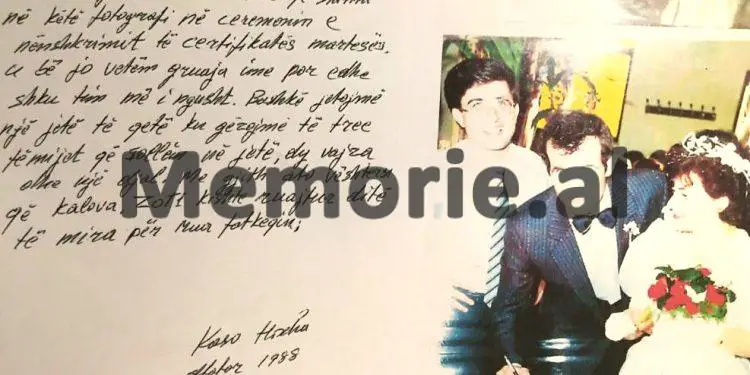 në këtë fotografi në ceremonin e
nënshkrimit të certifikatës martesës.
U bë jo vetëm gruaja ime por edhe
shku tim më i ngusht. Bashkë jetojmë
një jetë të qetë ku gëzojmë të tree
fëmijet që sollëm në jetë, dy vajza
dhe një djal. Me gjith ato
që kalova Zoti kishte ruajtur ditë
të mira për mua fatkeqin;
Memorie.al
Kaso Hoxha
1988